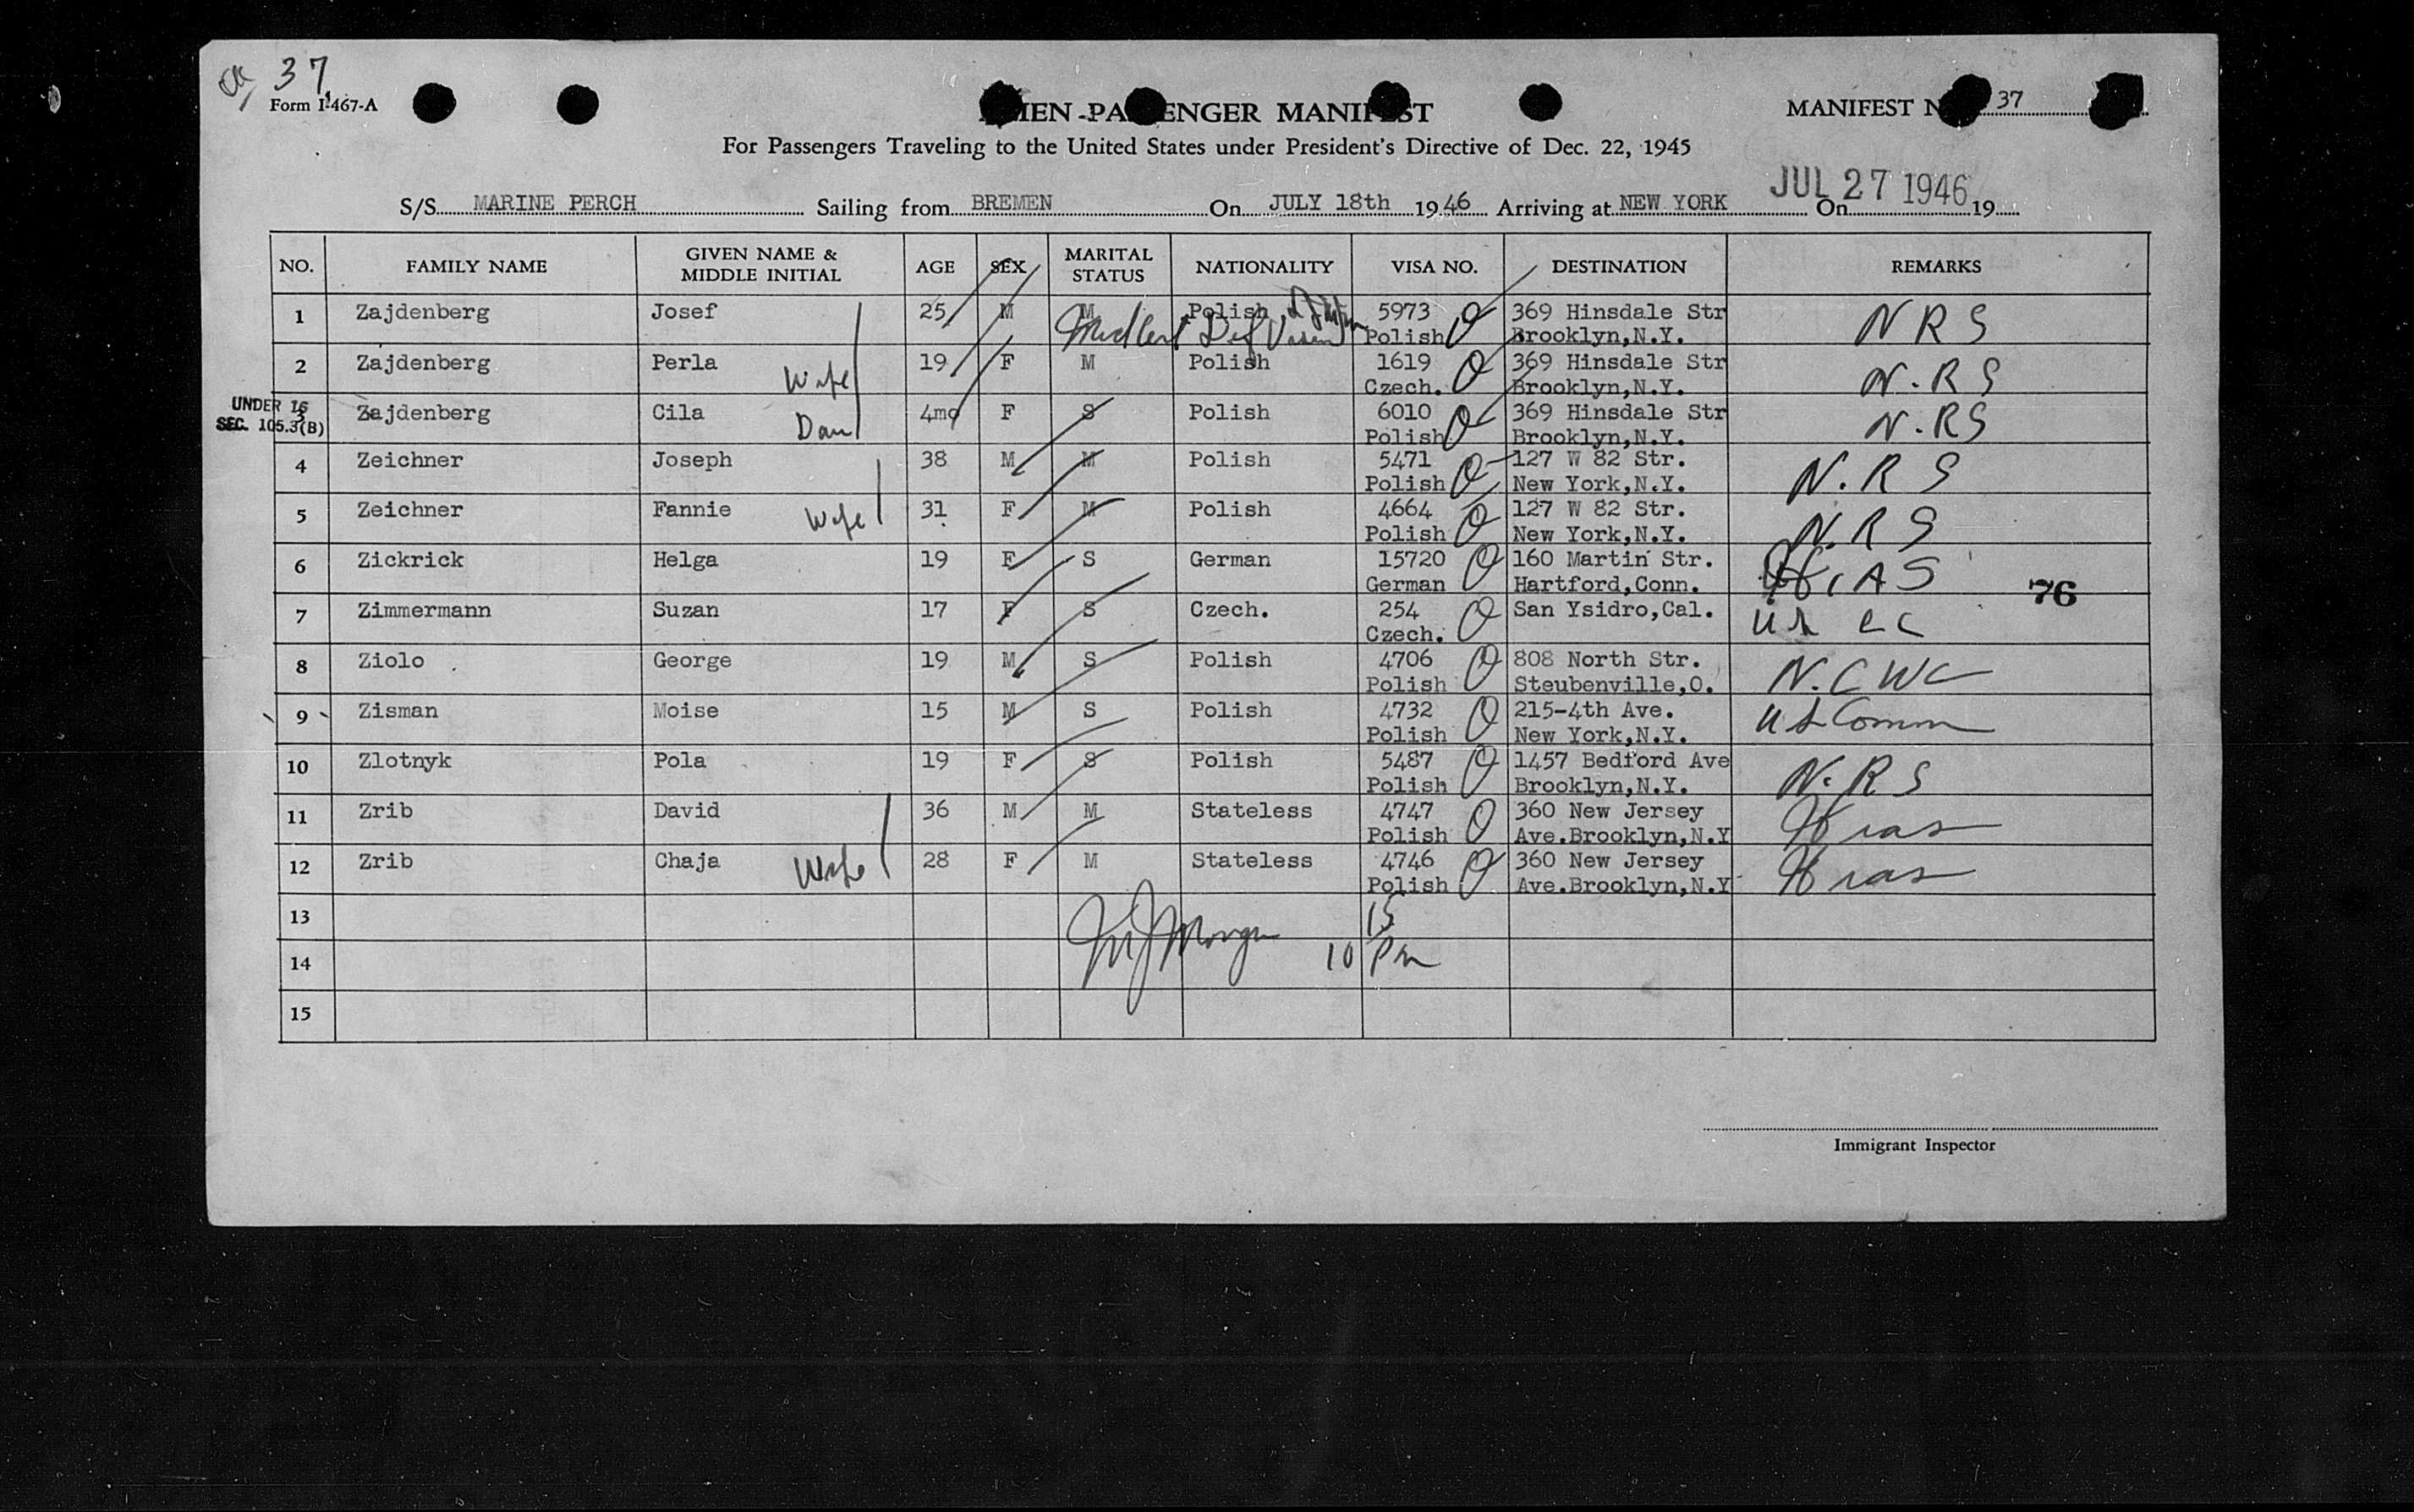 37
Form I-467-A
PASSENGER MANIFEST
MANIFEST 37
For Passengers Traveling to the United States under President's Directive of Dec. 22, 1945
S/S MARINE PERCH Sailing from BREMEN On JULY 18th 1946 Arriving at NEW YORK On JUL 27 1946 19
NO. FAMILY NAME GIVEN NAME & MIDDLE INITIAL AGE SEX MARITAL STATUS NATIONALITY VISA NO. DESTINATION REMARKS
1 Zajdenberg Josef 25 M M Polish 5973 369 Hinsdale Str N R S
Med Cert Def Vision Polish Brooklyn,N.Y.
2 Zajdenberg Perla Wife 19 F M Polish 1619 369 Hinsdale Str N.R S
Czech. Brooklyn,N.Y.
UNDER 16
SEC. 105.3(B)
3 Zajdenberg Cila Dau 4mo F S Polish 6010 369 Hinsdale Str N.RS
Polish Brooklyn,N.Y.
4 Zeichner Joseph 38 M M Polish 5471 127 W 82 Str. N.R S
Polish New York,N.Y.
5 Zeichner Fannie Wife 31 F M Polish 4664 127 W 82 Str. N.R S
Polish New York,N.Y.
6 Zickrick Helga 19 F S German 15720 160 Martin Str. HIAS
German Hartford,Conn.
76
7 Zimmermann Suzan 17 F S Czech. 254 San Ysidro,Cal. US CC
Czech.
8 Ziolo George 19 M S Polish 4706 808 North Str. N.C WC
Polish Steubenville,O.
9 Zisman Moise 15 M S Polish 4732 215-4th Ave. US Comm
Polish New York,N.Y.
10 Zlotnyk Pola 19 F S Polish 5487 1457 Bedford Ave N.R S
Polish Brooklyn,N.Y.
11 Zrib David 36 M M Stateless 4747 360 New Jersey Hias
Polish Ave.Brooklyn,N.Y
12 Zrib Chaja Wife 28 F M Stateless 4746 360 New Jersey Hias
Polish Ave.Brooklyn,N.Y
13 15
14 10 Pm
15
Immigrant Inspector